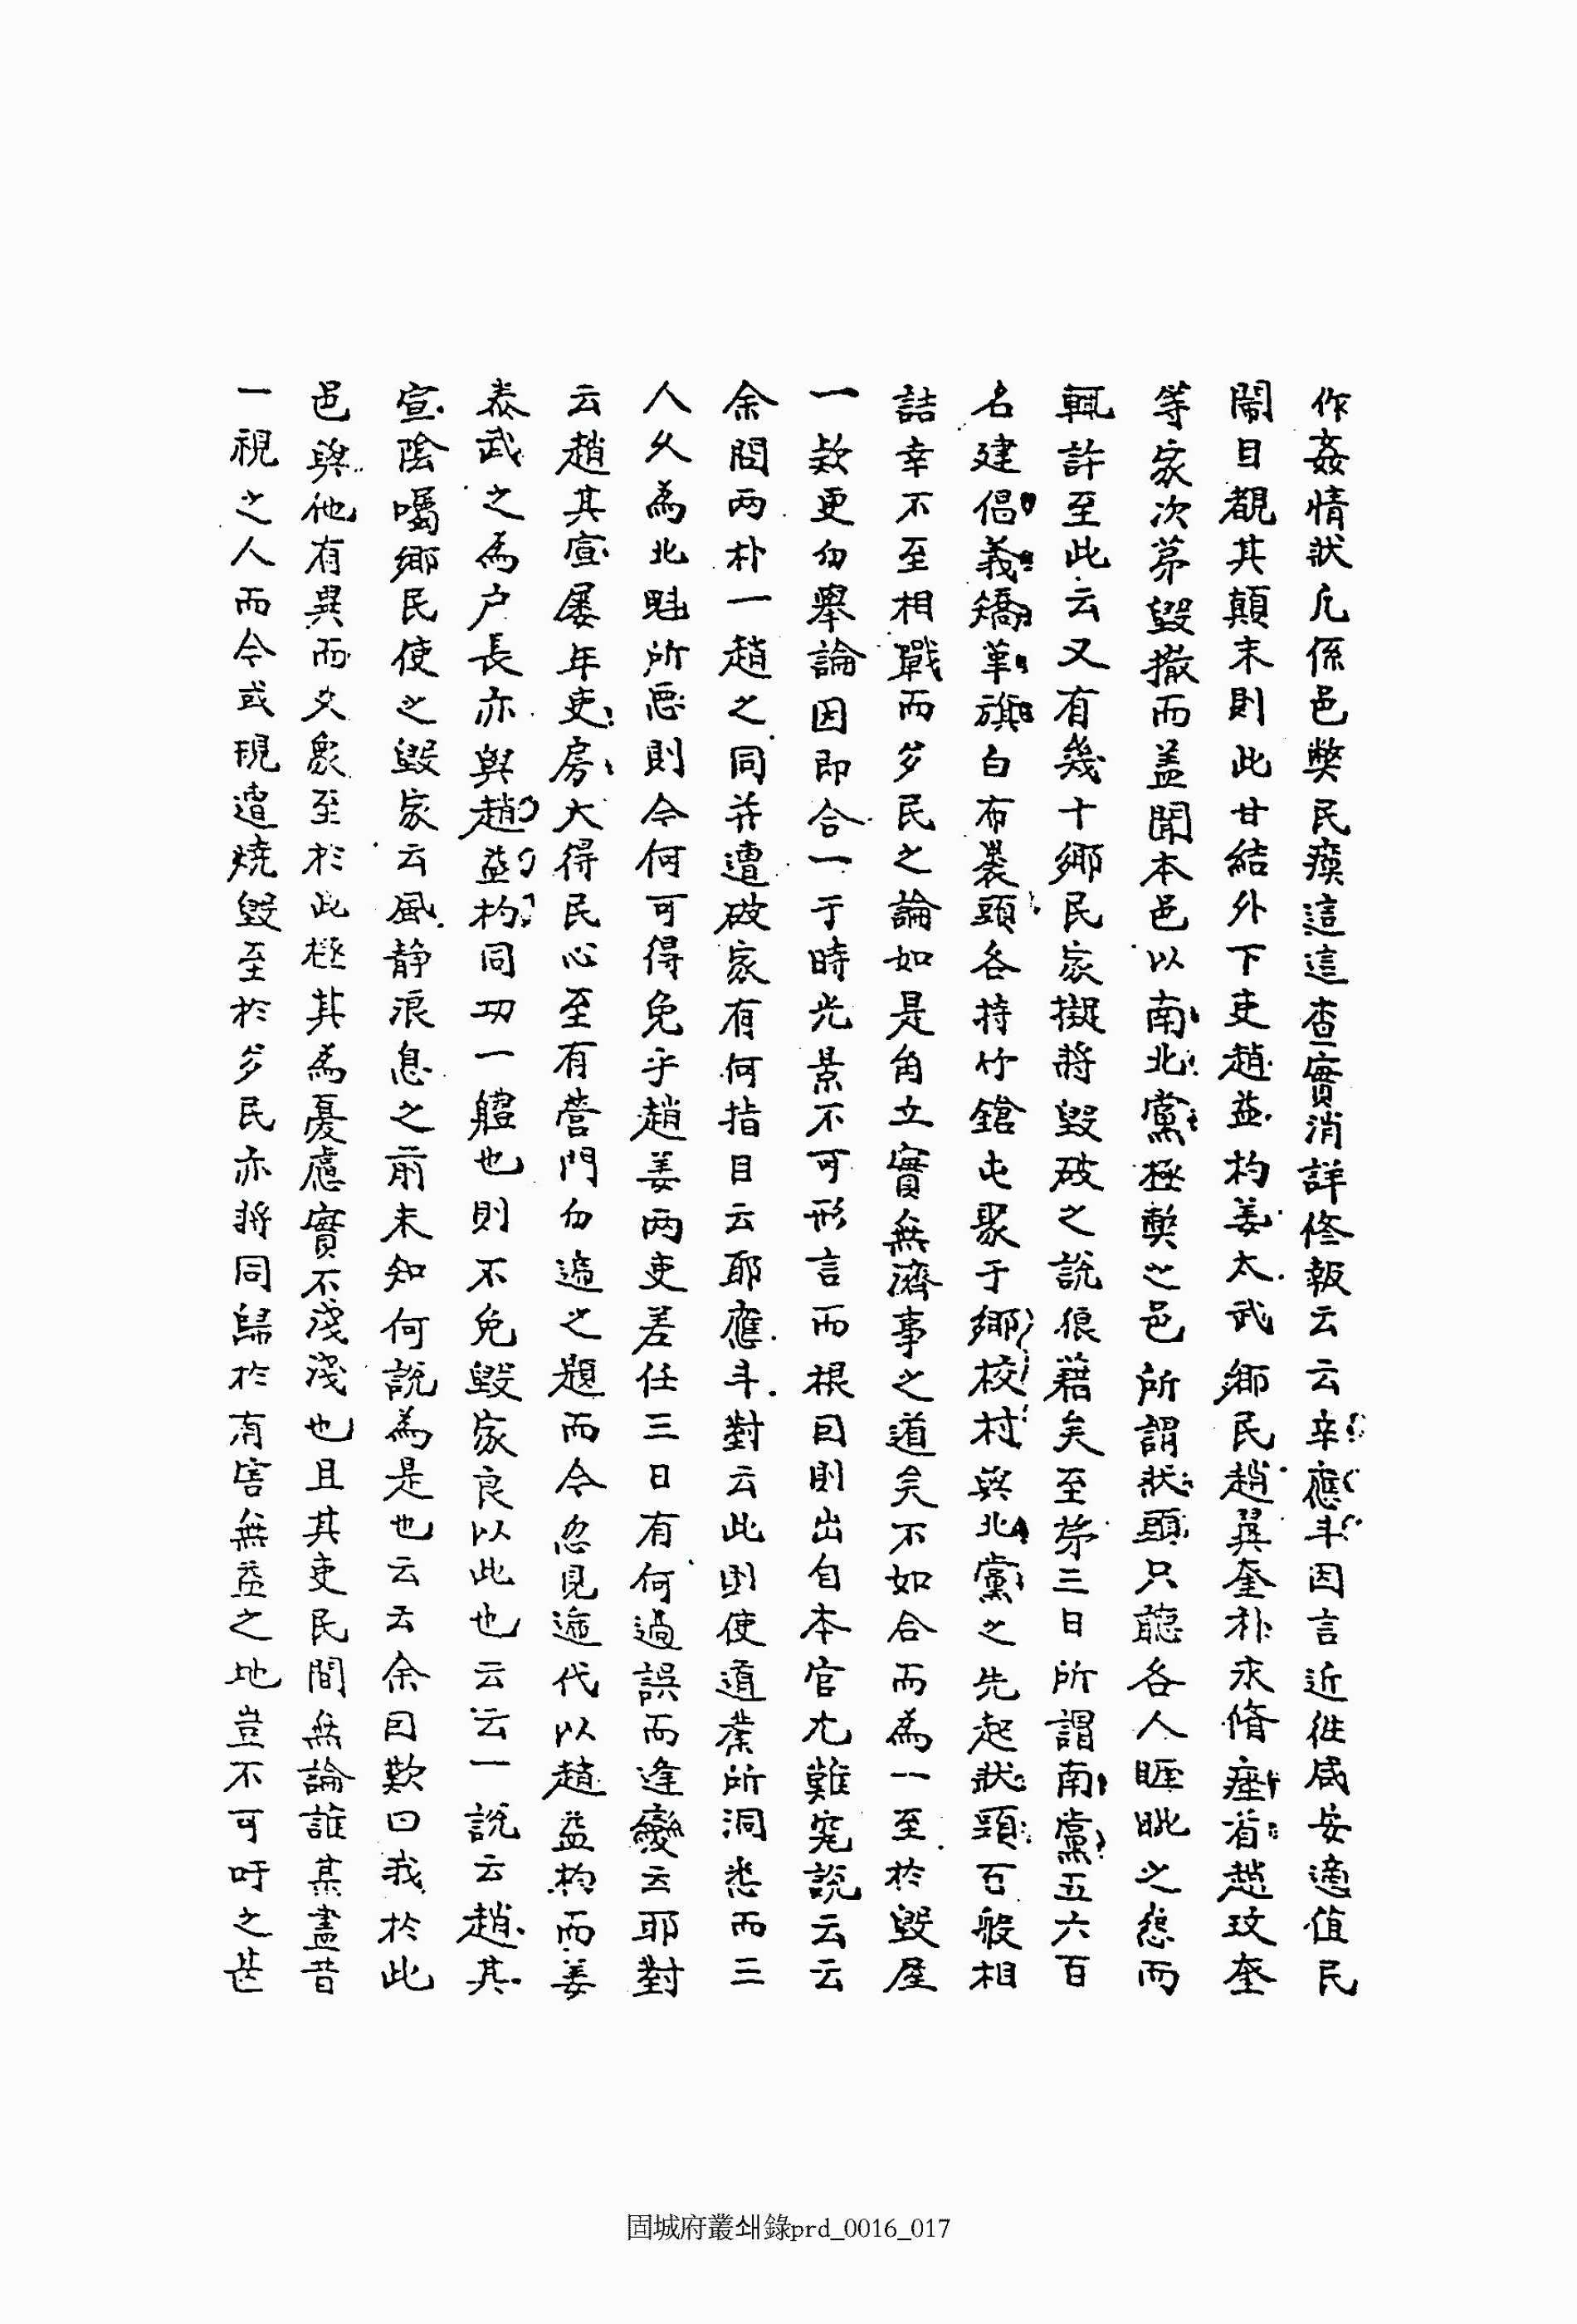 作姦情狀凡係邑獘民瘼這這查實消詳修報云云辛應斗因言近往咸安適值民
鬧目覩其顚末則此甘結外下吏趙益杓姜太武鄉民趙巽奎朴永脩座首趙玟奎
等家次苐毀撤而盖聞本邑以南北黨極獘之邑所謂狀頭只聽各人睚眦之怨而
輒許至此云又有幾十鄉民家擬將毀破之說狼藉矣至苐三日所謂南黨五六百
名建倡義矯革旗白布裹頭各持竹鎗屯聚于鄉校村與北黨之先起狀頭百般相
詰幸不至相戰而多民之論如是角立實無濟事之道矣不如合而爲一至於毀屋
一欵更勿擧論因即合一于時光景不可形言而根因則出自本官尤難究說云云
余問两朴一趙之同并遭破家有何指目云耶應斗對云此則使道業所洞悉而三
人久爲北魁所惡則今何可得免乎趙姜两吏差任三日有何過誤而逢變云耶對
云趙其宣屡年吏房大得民心至有營門勿遞之題而今忽見遞代以趙益杓而姜
泰武之爲户長亦與趙益杓同功一軆也則不免毀家良以此也云云一說云趙其
宣陰囑鄉民使之毀家云風静浪息之前未知何說爲是也云云余因歎曰我於此
邑與他有異而久衆至於此極其爲憂慮實不淺淺也且其吏民間無論誰某盡昔
一視之人而今或現遭燒毀至於多民亦將同歸於有害無益之地豈不可吁之甚
固城府叢쇄錄prd_0016_017